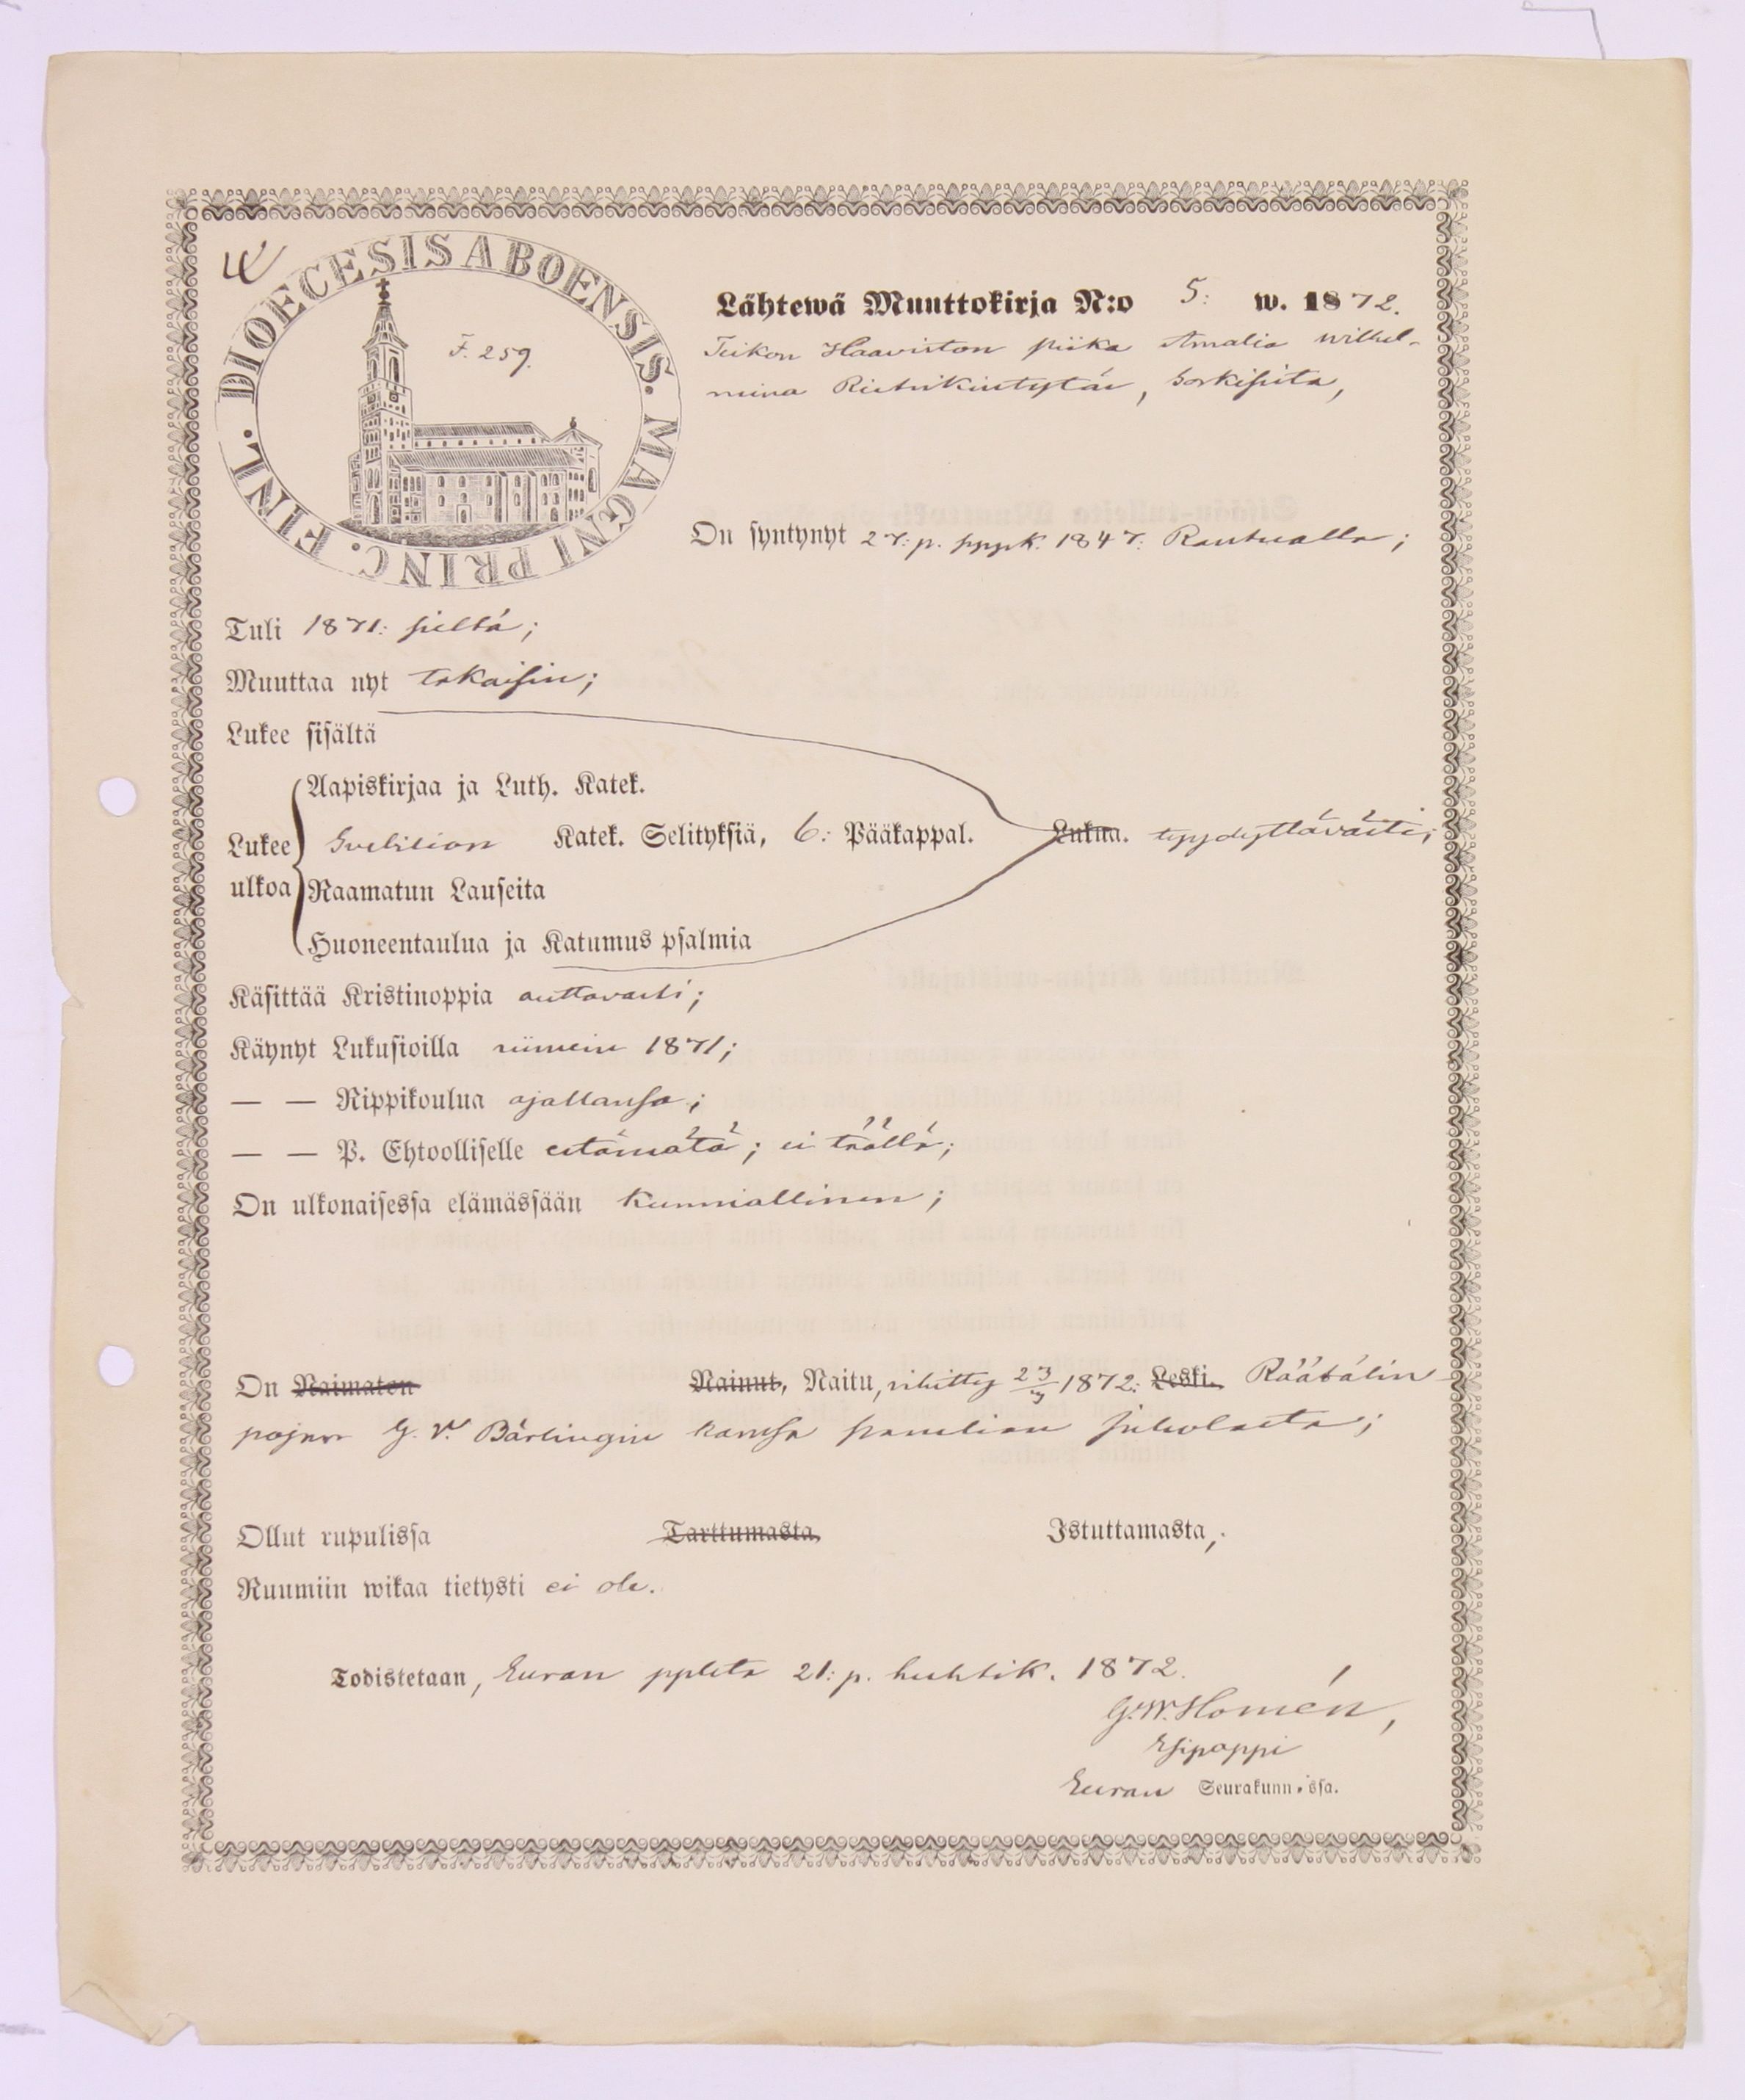 FINL. DIOECESIS ABOENSIS. MAGNI PRINC.
F. 259.
Lähtewä Muuttokirja N:o 5: w. 1872.
Teikon Haaviston piika Amalia Wilhel-
mina Rietrikintytär,
On syntynyt 27: p. syysk. 1847: Rantualla;
Tuli 1871: sieltä;
Muuttaa nyt takaisin;
Lukee sisältä
Aapiskirjaa ja Luth. Katek.
Lukee Svebilion Katek. Selityksiä, 6: Pääkappal. Lukua. tyydyttäväisti;
ulkoa Raamatun Lauseita
Huoneentaulua ja Katumus psalmia
Käsittää Kristinoppia auttavasti;
Käynyt Lukusioilla viimein 1871;
— — Rippikoulua ajallansa;
— — P. Ehtoolliselle estämätä; ei täällä;
On ulkonaisessa elämässään kunniallinen;
On Naimaton Nainut, Naitu, vihitty 23/3 1872: Leski. Räätälin
pojan G. V. Bärlingin kanssa
Ollut rupulissa Tarttumasta, Istuttamasta,
Ruumiin wikaa tietysti ei ole.
Todistetaan, Euran ppleta 21: p. huhtik. 1872.
G. W. Homén,
Esipappi
Euran Seurakunn.ssa.